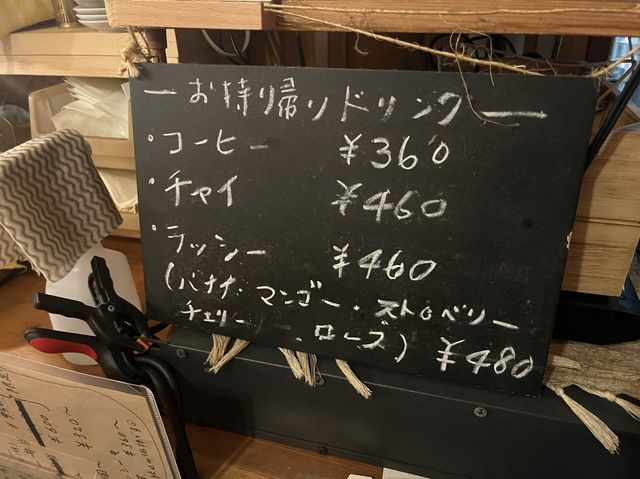 ー お持ち帰りドリンク ー
・コーヒー ¥360
・チャイ ¥460
・ラッシー ¥460
(バナナ・マンゴー・ストロベリー
チェリー・ローズ) ¥480
¥600
¥320~
¥360~